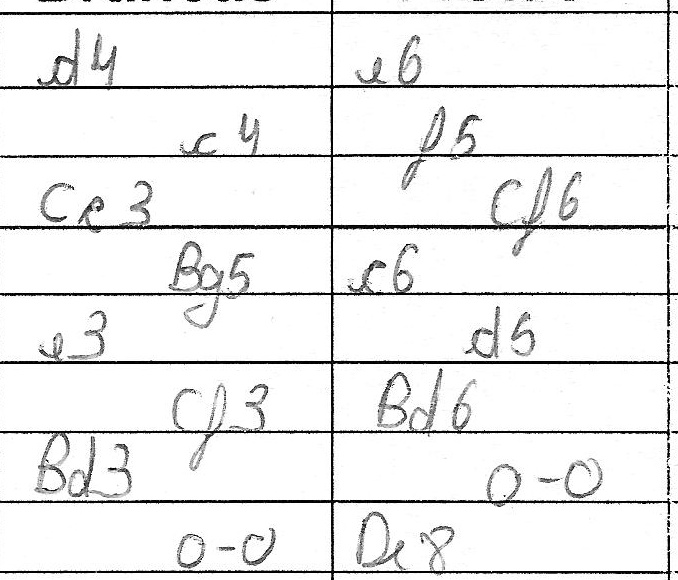 d4 e6
c4 f5
Cc3 Cf6
Bg5 c6
e3 d5
Cf3 Bd6
Bd3 0-0
0-0 De8